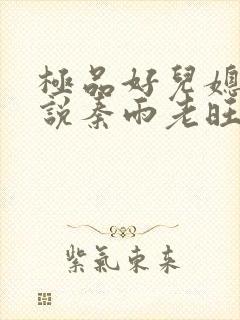 極品好兒媳
說秦雨老旺
紫氣東來